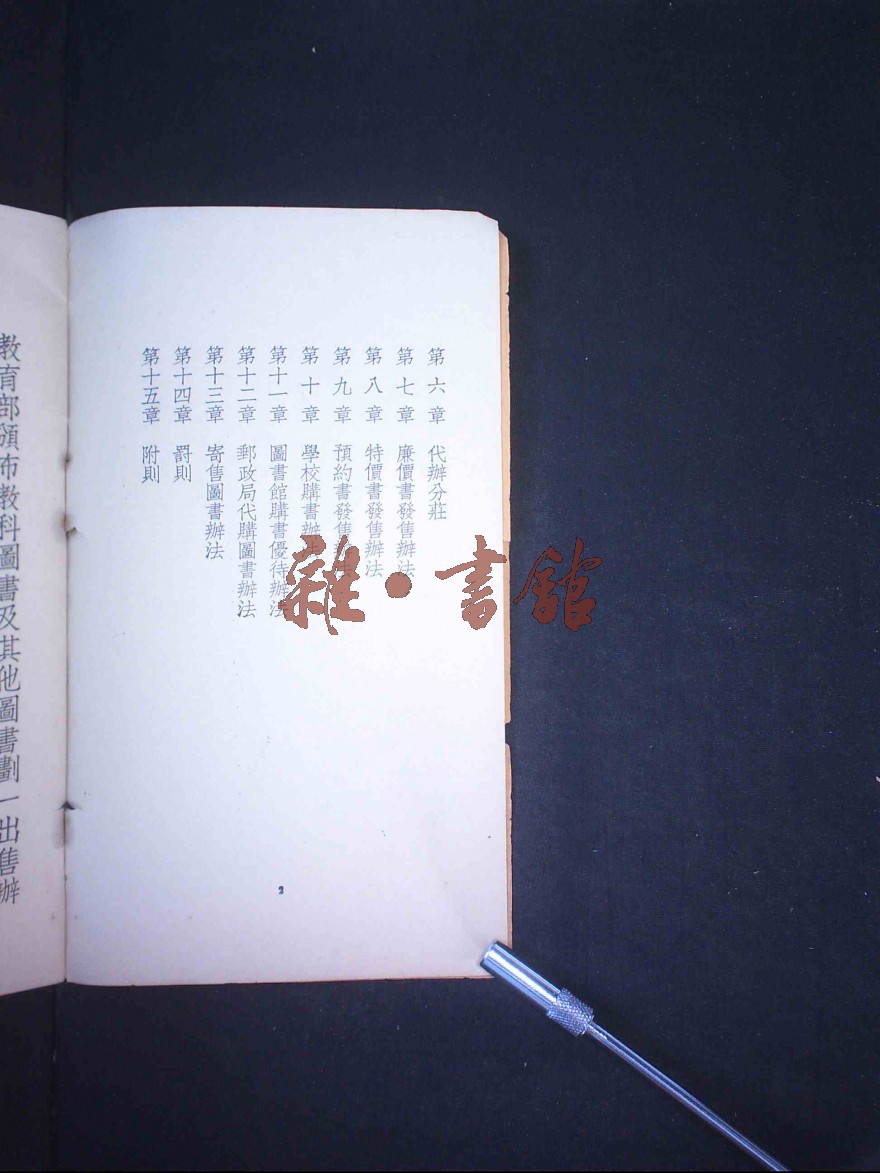 第六章　代辦分莊
第七章　廉價書發售辦法
第八章　特價書發售辦法
第九章　預約書發售辦法
第十章　學校購書辦法
第十一章　圖書館購書優待辦法
第十二章　郵政局代購圖書辦法
第十三章　寄售圖書辦法
第十四章　罰則
第十五章　附則
2
教育部頒布教科圖書及其他圖書劃一出售辦
雜·書館